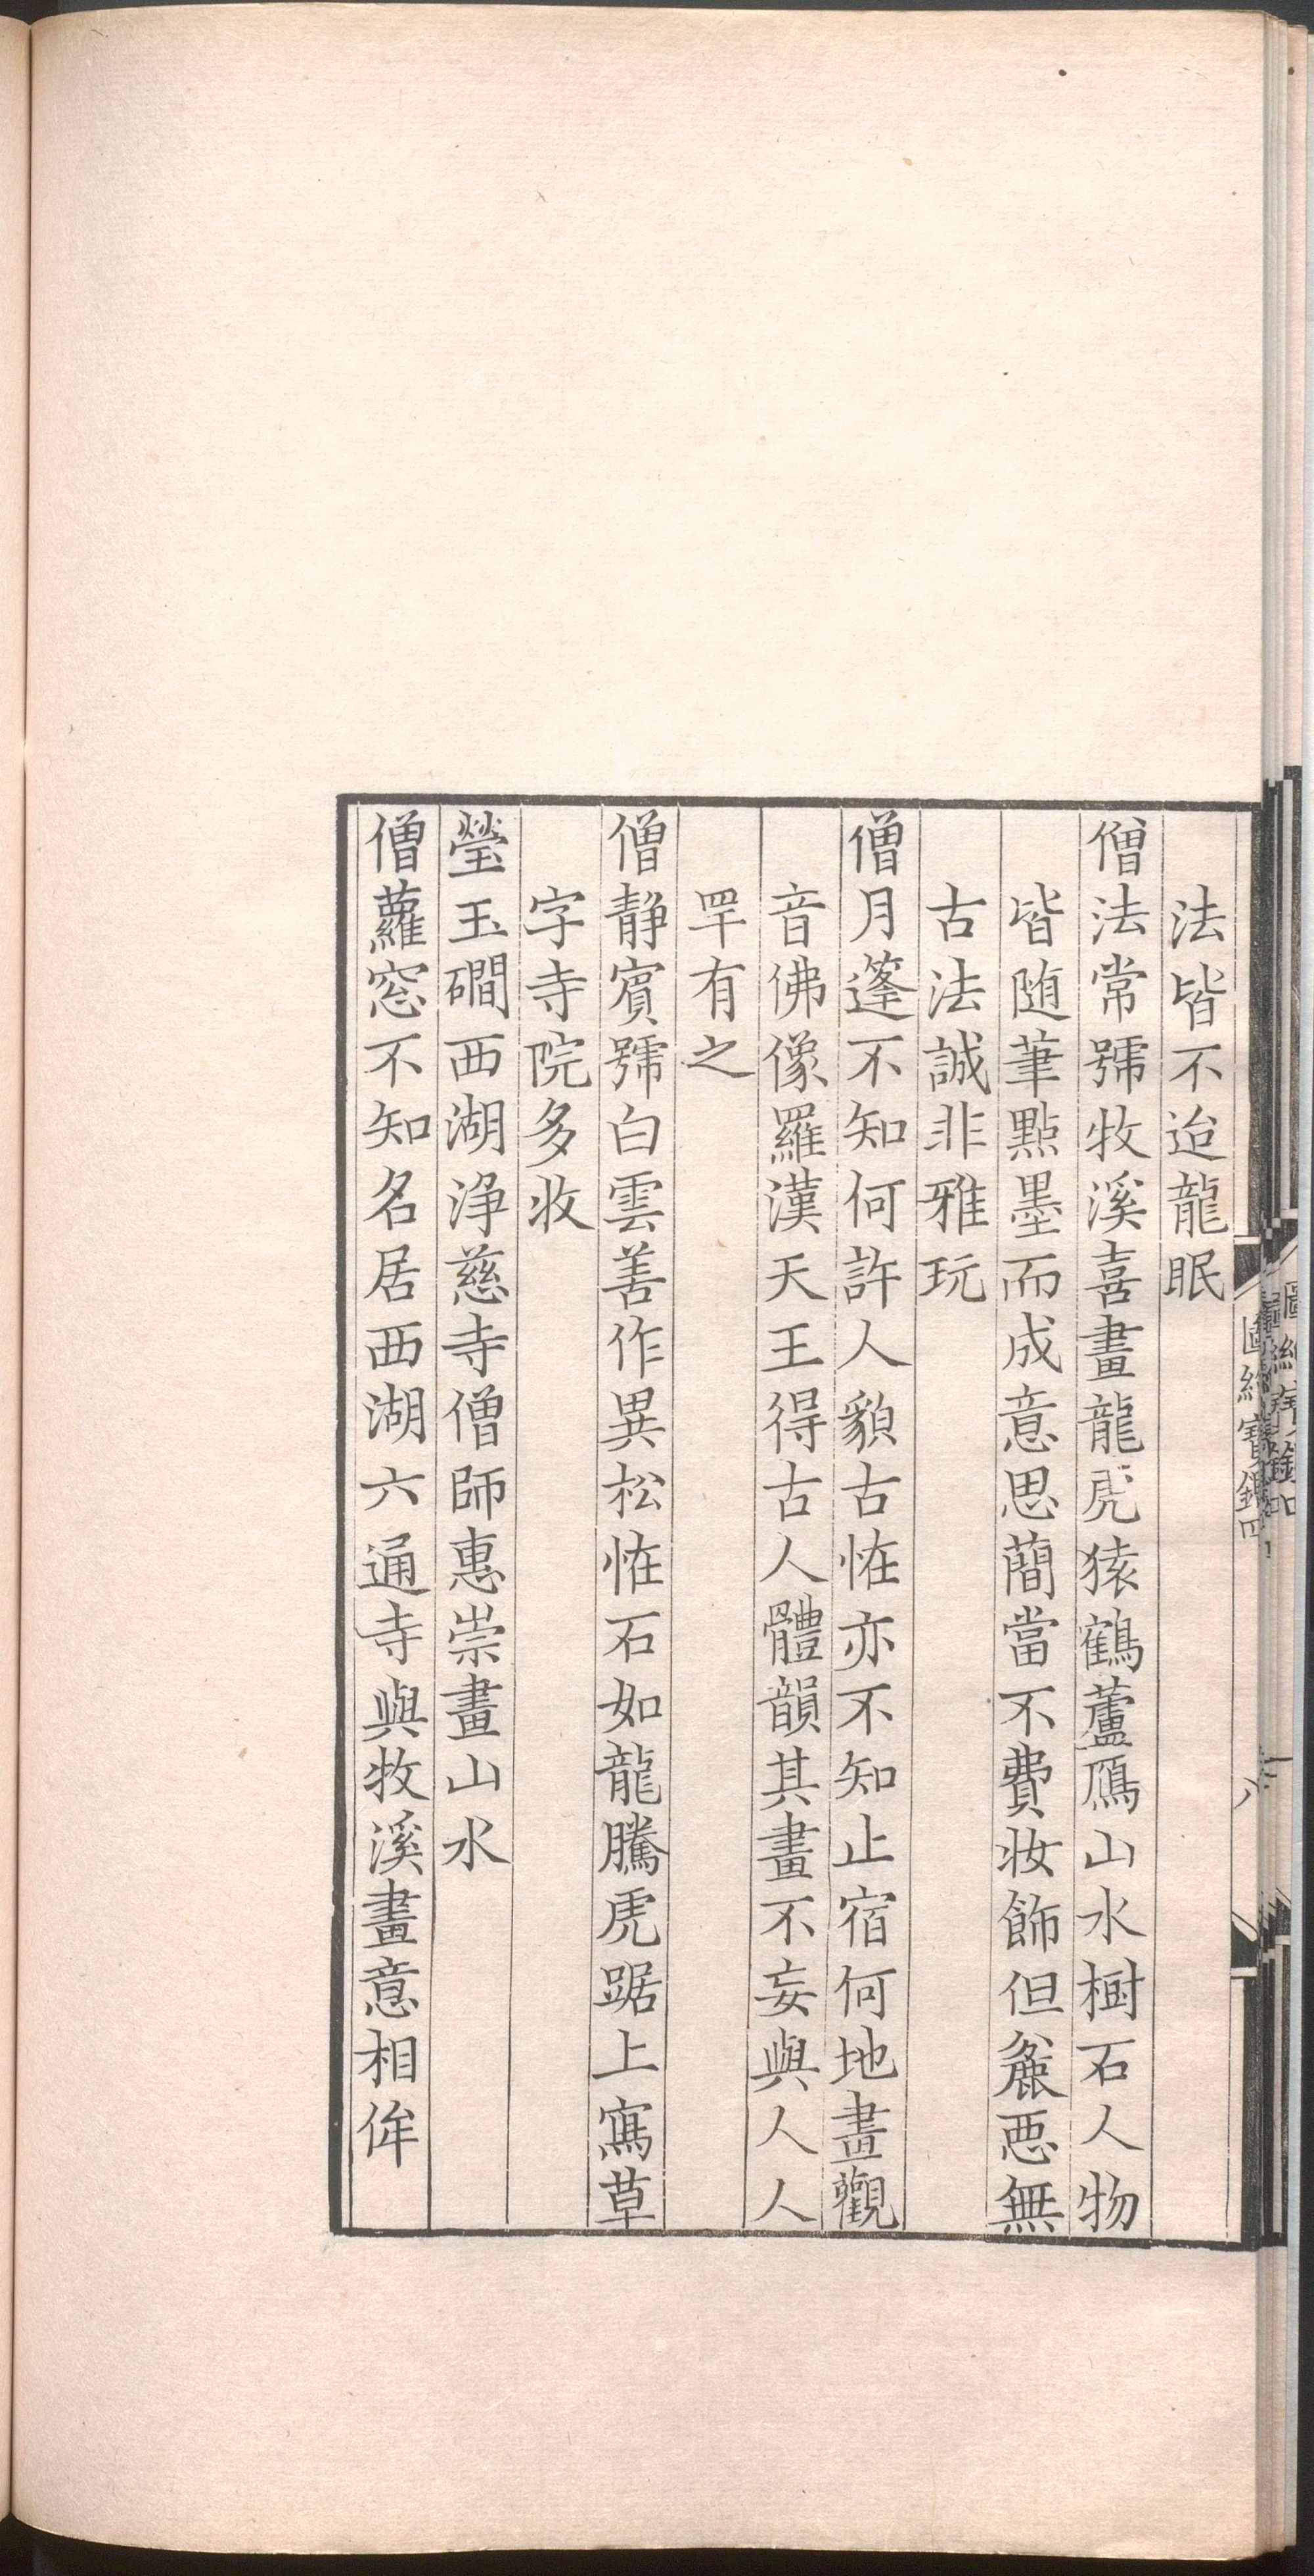 法皆不迨龍眠
僧法常號牧溪喜畫龍虎猿鶴蘆鴈山水樹石人物
皆随筆點墨而成意思蕑當不費妝飾但麄惡無
古法誠非雅玩
僧月蓬不知何許人貌古恠亦不知止宿何地畫觀
音佛像羅漢天王得古人體韻其畫不妄與人人
罕有之
僧静賓號白雲善作異松恠石如龍騰虎踞上寫草
字寺院多收
瑩玉磵西湖浄慈寺僧師惠崇畫山水
僧蘿窓不知名居西湖六通寺與牧溪畫意相侔
圖繪寶鑑四
八